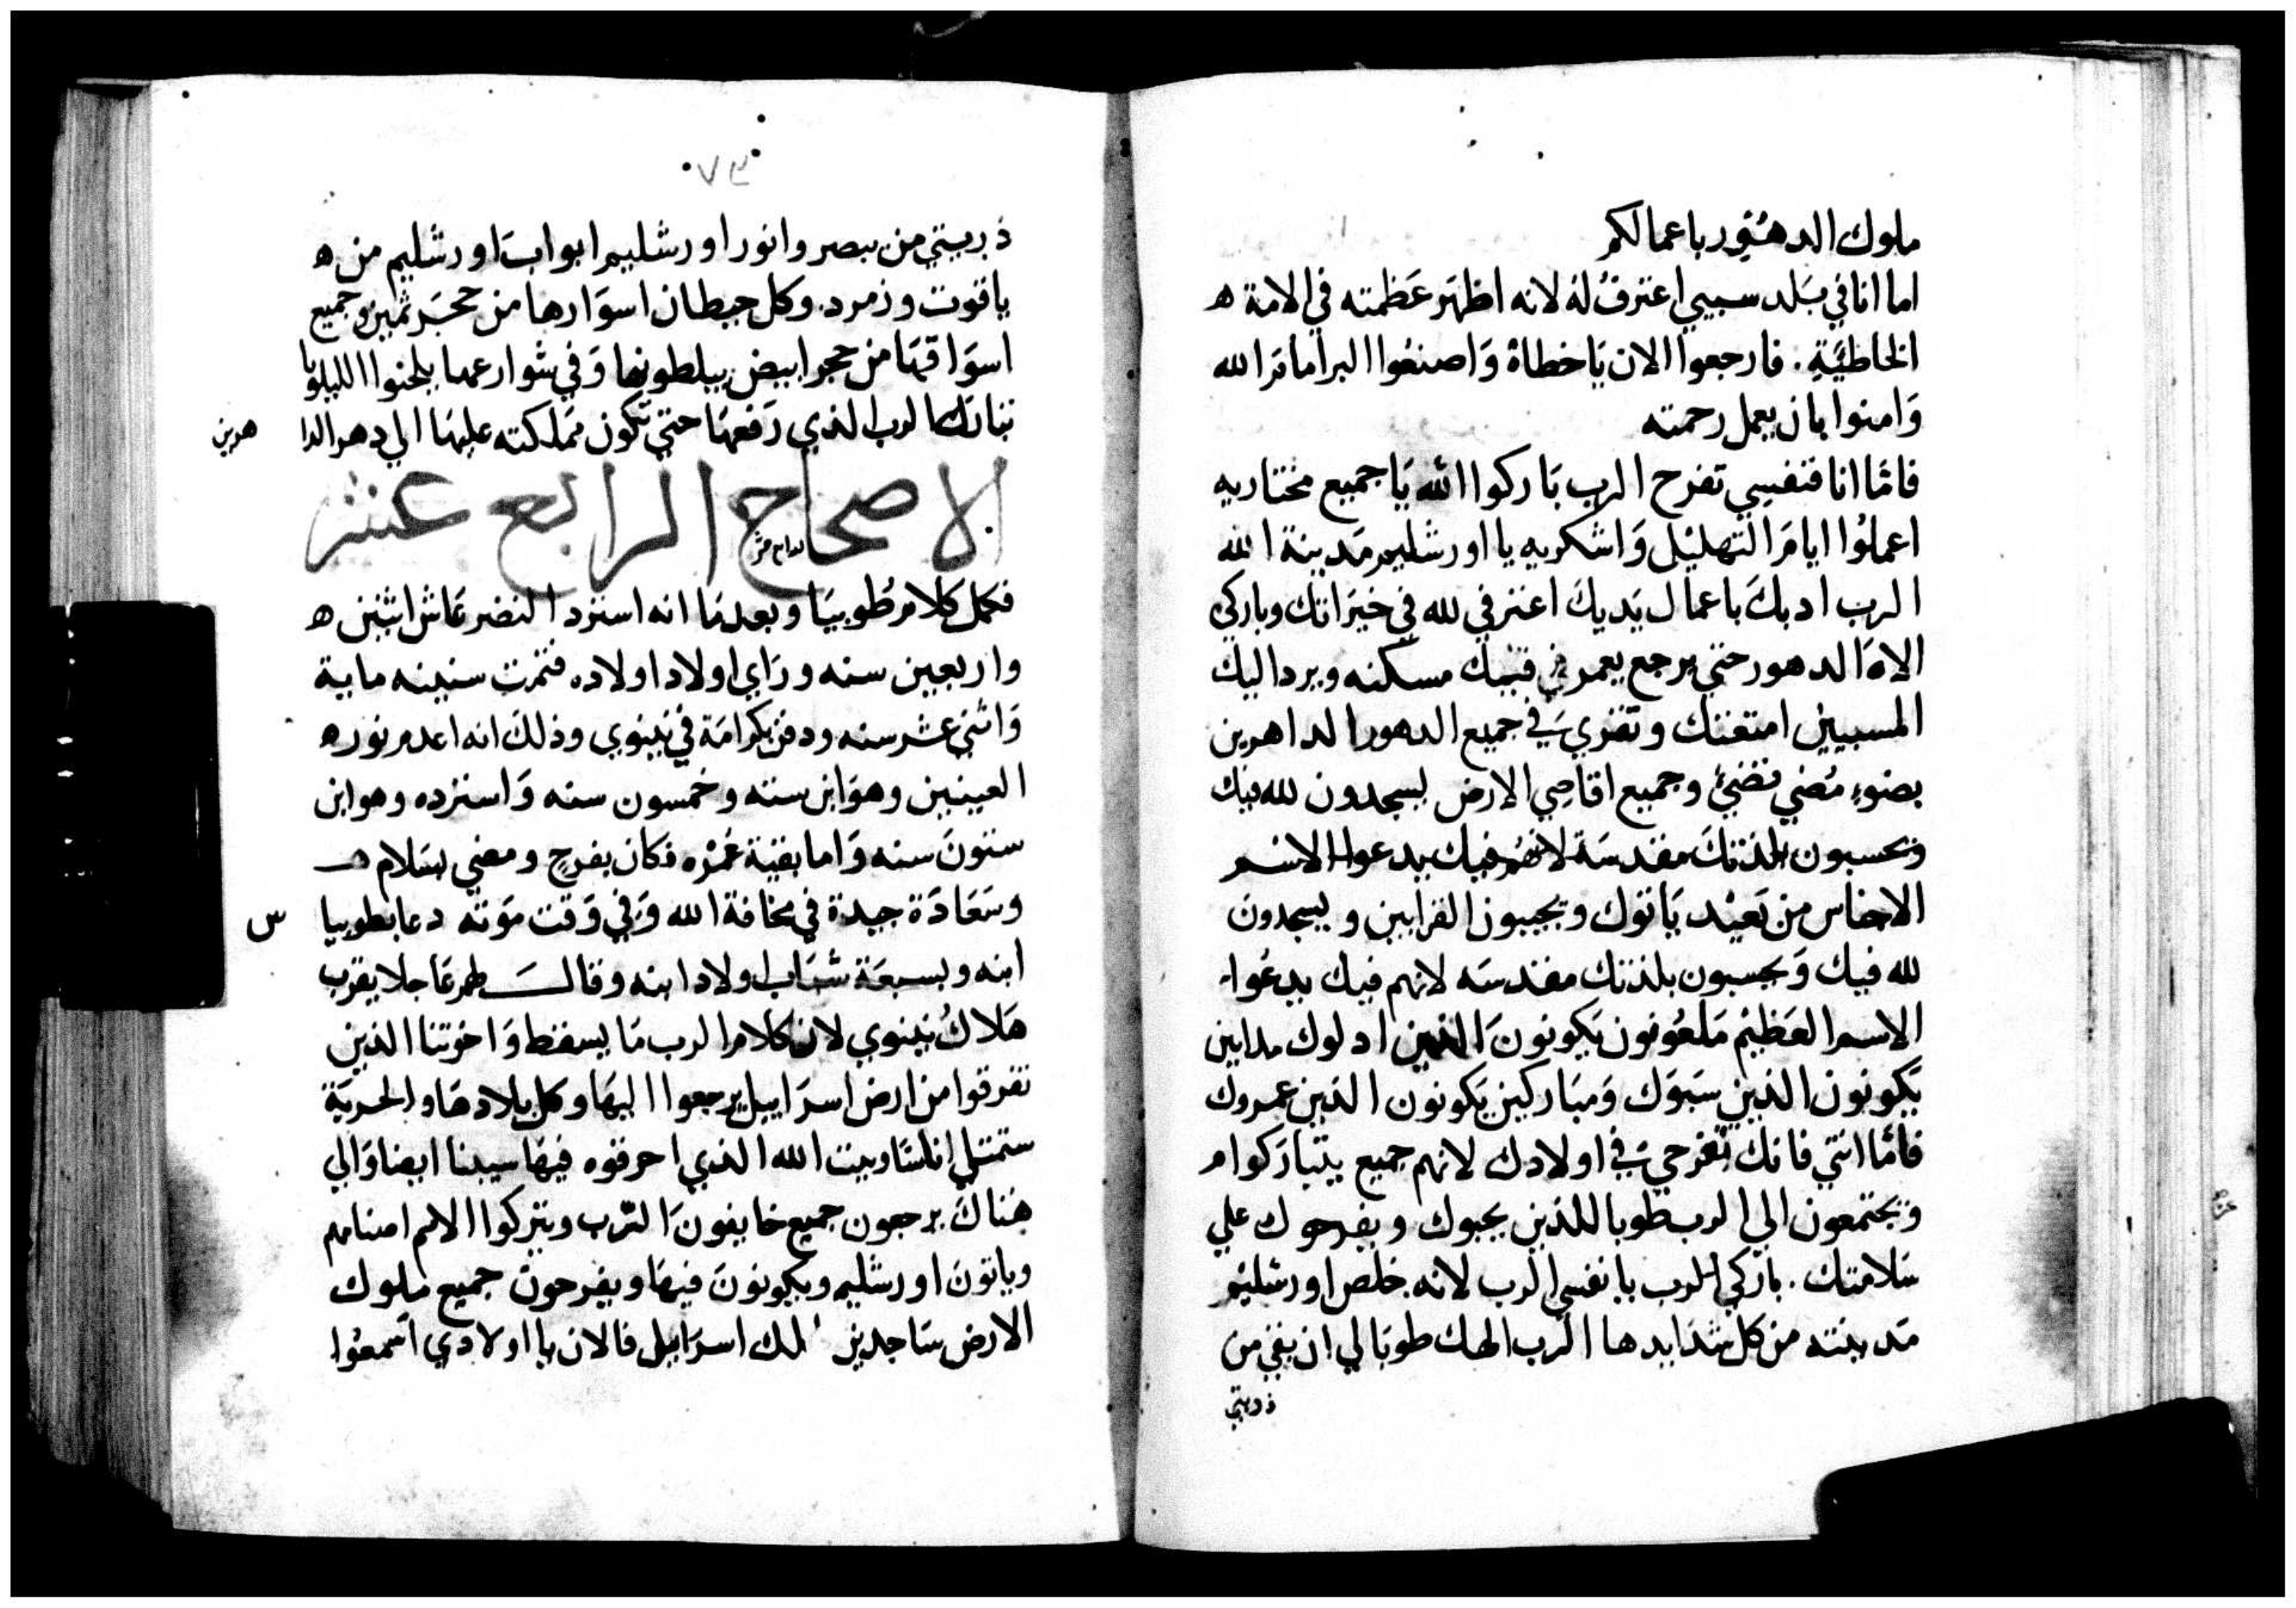 ملوك الدهور باعمالكم
اما انا في بَلد سبيي اعترفُ لهُ لانه اظهَر عَظمته في الامة ه
الخاطيَةِ. فارجعوا الان يَاخطاهْ وَاصنعُوا البر امامَ الله
وَامنوا بان يعمل رحمته
فامَّا انا فنفسِي تفرح الرب بَاركوا الله يَا جميع مختاريه
اعملُوا ايامَ التهليْل وَاشكريه يا اورشليم مَدينة الله
الرب ادبكَ باعمال يَديكَ اعترفي لله في خيَراتك وباركي
الاهَ الدهور حتي يرجع يعمر في قببك مسكنه ويرد اليك
المسبيين امتعنك وتفري سَي في جميع الدهور الداهرين
بضوءٍ مُضي تضئ وجميع اقاصِي الارض يسجدون لله فيك
وتحسبون بلذتكَ مقدسَة لانهُم فيك يدعوا الاسم
الاجناس من بَعيْد يَاتوك ويجيبون القرابين ويسجدون
لله فيك وَيحسبون بلذتك مقدسَه لانهم فيك يدعُوا
الاسم العَظيْم مَلعُونون يَكونونَ الذين ادلوك مداينن
يَكونون الذين سَبَوَك وَمبَاركين يَكونون الذين عمروك
فامَّا انتي فانك تفرحي سَي في اولادك لانهم جميع يتبارَكوا م
ويجتمعون الي الرب طوبا للذين يحبوك ويفرحوك علي
سَلامتك. بارَكي الرب يا نفسي الرب لانه خلص اورشليم
مَدينته من كل شدَايدها الرب الهك طوبَا لي ان بقي من
ذريتي
٧٣
ذريتي من يبصر وانور اورشليم ابوابَ اورشليم من ه
ياقوت وزمرد. وكل حيطان اسوَارها من حجَر ثمين وجميع
اسوَاقهَا من حجر ابيض يبلطونها وَفي شوارعها يلحنوا الليلويا
تبارك الرب الذي رَفعهَا حتي تكون مَملكته عليهَا الي دهر الدا هرين
الاصحاح الرابع عشر
فكمل كلام طُوبيَا وبعدمَا انه استرد النضر عَاش اثنين ه
واربعين سنه ورَاي اولاد اولاده فتمت سنينه ماية
وَاثني عَشر سنه ودفن بكرامَة في نينوي وذلكَ انه اعدم نور ه
العينين وهوَ ابن سته وخمسون سنه وَاسترده وهو ابن
ستونَ سنه وَاما بقية عمْره فكان بفرح ومضي بسَلام
وسَعَادَة جيدة في مخافة الله وَفي وَقت مَوته دعا بطوبيا
ابنه وبسبعَة شبَاب اولاد ابنه وقال لهم عَاجلا يقرب
هَلاكُ نينوي لان كلام الرب مَا يسقط وَاخوتنا الذين
تفرقوا من ارض اسرَاييل يرجعوا اليهَا وكل بلادهَا والخربَة
ستمتلي اناسَا وبيت الله الذي احرقوه فيهَا سيبنا ايضا وَالي
هُناكَ يرجعون جميع خايفونَ الرّب ويتركوا الامم اصنامهم
وياتونَ اورشليم ويكونونَ فيهَا ويفرحونَ جميع ملوك
الارض سَاجدين لملك اسرَاييل فالان يا اولادي اسمعُوا